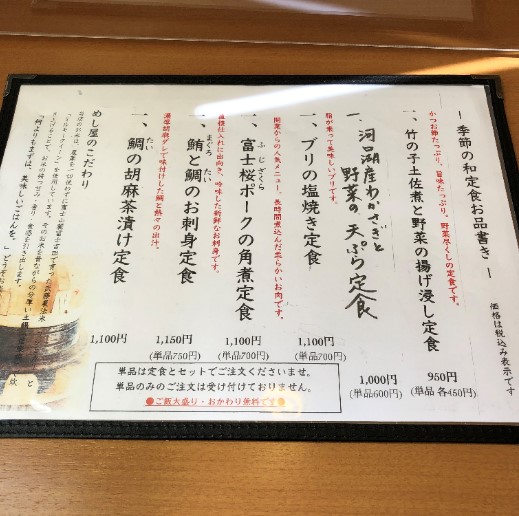 ― 季節の和定食お品書き ―
価格は税込み表示です
かつお節たっぷり、旨味たっぷり、野菜尽くしの定食です。
一、竹の子土佐煮と野菜の揚げ浸し定食
950円
(単品 各460円)
一、河口湖産わかさぎと
野菜の天ぷら定食
1,000円
(単品600円)
脂が乗って美味しいブリです。
一、ブリの塩焼き定食
1,100円
(単品700円)
開業からの人気メニュー。長時間煮込んだ柔らかいお肉です。
ふじざくら
一、富士桜ポークの角煮定食
1,100円
(単品700円)
直接仕入れに出向き、吟味した新鮮なお刺身です。
まぐろ たい
一、鮪と鯛のお刺身定食
1,150円
(単品750円)
濃厚胡麻ダレで味付けした鯛と熱々の出汁。
たい
一、鯛の胡麻茶漬け定食
1,100円
めし屋のこだわり
「何よりもまずは、美味しいごはんを。」
単品は定食とセットでご注文くださいませ。
単品のみのご注文は受け付けておりません。
●ご飯大盛り・おかわり無料です●